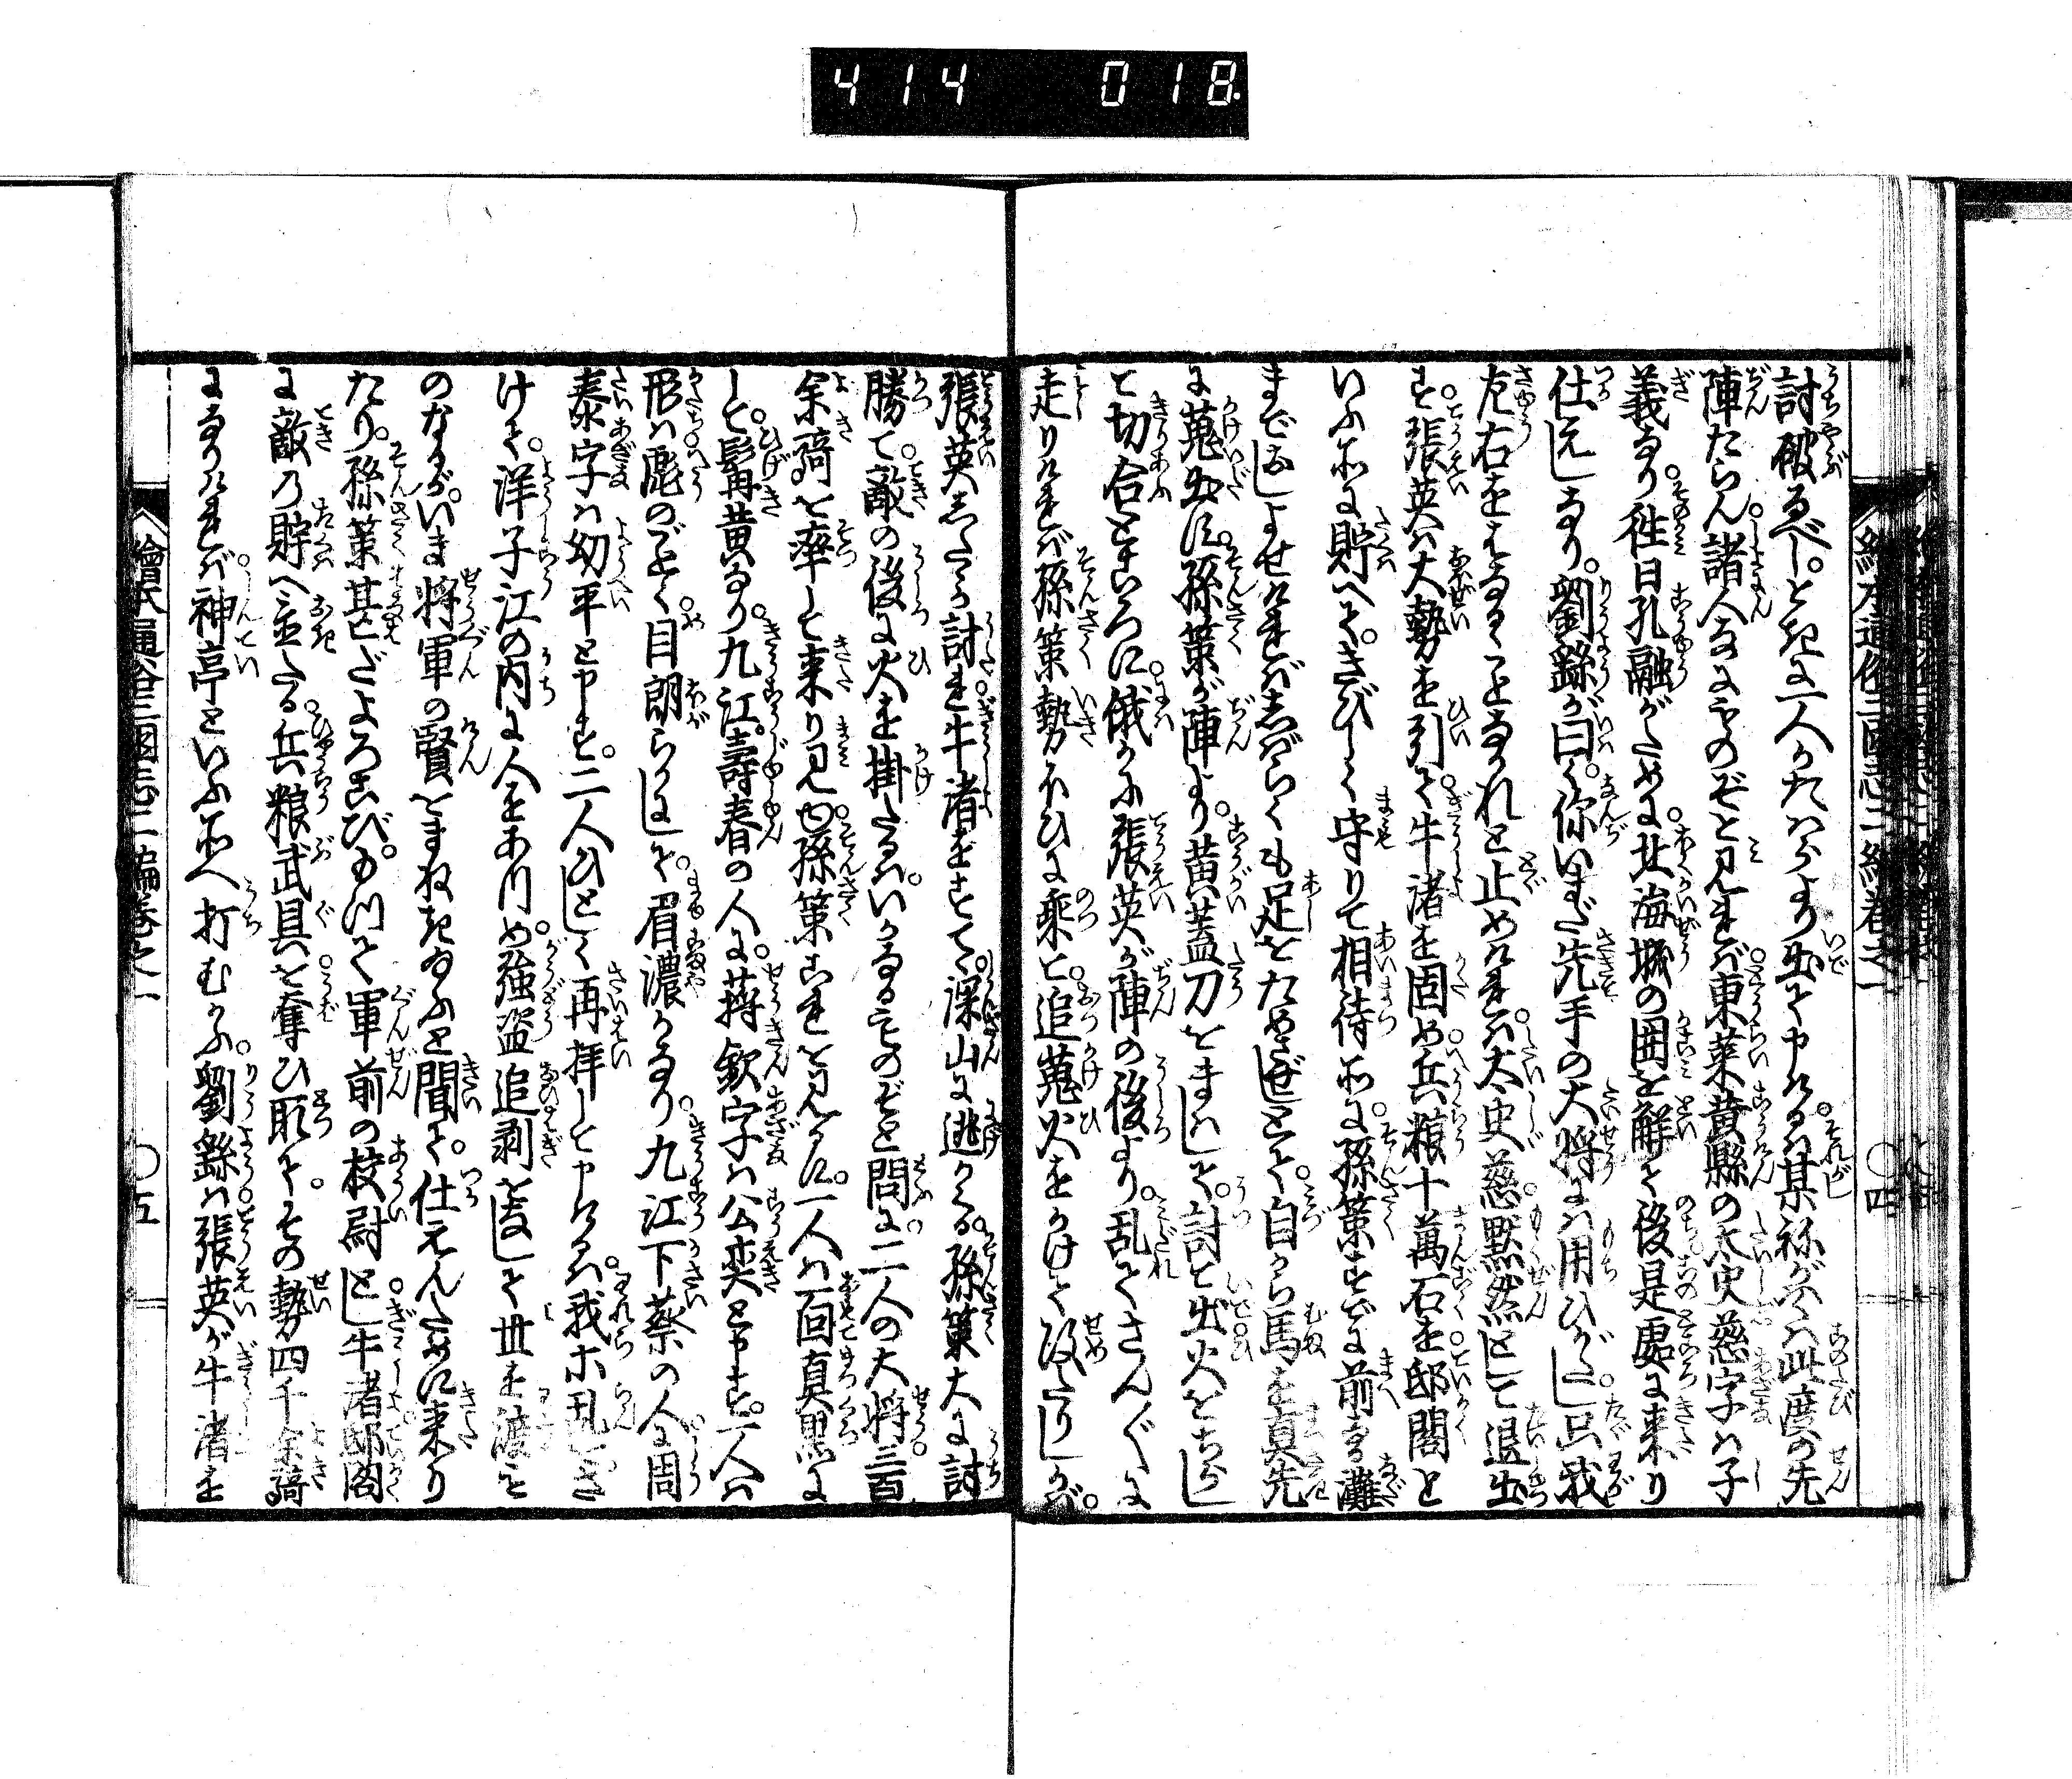 414 018
討破るべしときに一人かたハらより出て申けるハ某祢がハくハ此度の先
陣たらん諸人なにものぞと見れバ東莱黄縣の太史慈字ハ子
義なり徃日孔融がために北海城の囲を解て後是處に来り
仕えしなり劉繇が曰く你いまだ先手の大将にハ用ひがたし只我
左右をはなるゝことなかれと止めけれバ太史慈黙然として退出
す張英ハ大勢を引て牛渚を固め兵粮十萬石を邸閣と
いふ所に貯へてきびしく守りて相待所に孫策すでに前なる灘
までおしよせけれバしばらくも足をためさせじとて自から馬を真先
に蒐出に孫策が陣より黄蓋刀をまハして討て出火をちらし
て切合ところに俄かに張英が陣の後より乱てさんぐに
走りけれバ孫策勢ひに乗て追蒐火をかけて攻たりしかバ
張英さんゞ討れ牛渚をすてゝ深山に逃かくる孫策大に討
勝て敵の後に火を掛たるハいかなるものぞと問に二人の大将三百
余騎を率して来り見ゆ孫策これを見るに一人ハ面真黒に
して髯黄なり九江壽春の人に蒋欽字ハ公奕と申す一人ハ
形ハ彪のごとく目朗らかにして眉濃かなり九江下蔡の人周
泰字ハ幼平と申す二人ひとしく再拝して申けるハ我ホ乱にさ
けて洋子江の内に人をあつめ強盗追剥をなして世を渡るも
のなるがいま将軍の賢をまねきゐふと聞て仕えんために来り
たり孫策甚だよろこびもつて軍前の校尉とし牛渚邸閣
に敵の貯へ置たる兵粮武具を奪ひ取てその勢四千余騎
になりけれバ神亭といふ所へ打むかふ劉繇ハ張英が牛渚を
繪本通俗三國志二編巻之一 〇四
繪本通俗三國志二編巻之一 〇五